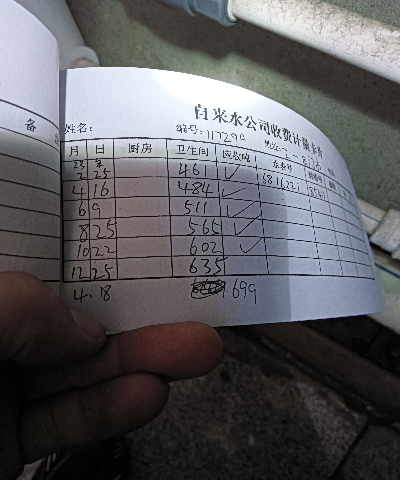 备
自来水公司收费计量卡片
姓名: 编号: 117290
月 日 厨房 卫生间
23年
2 25 461 ✓ 6816221
4 16 484 ✓
6 9 511 ✓
8 25 565 ✓
10 22 602 ✓
12 25 635
4.18 699